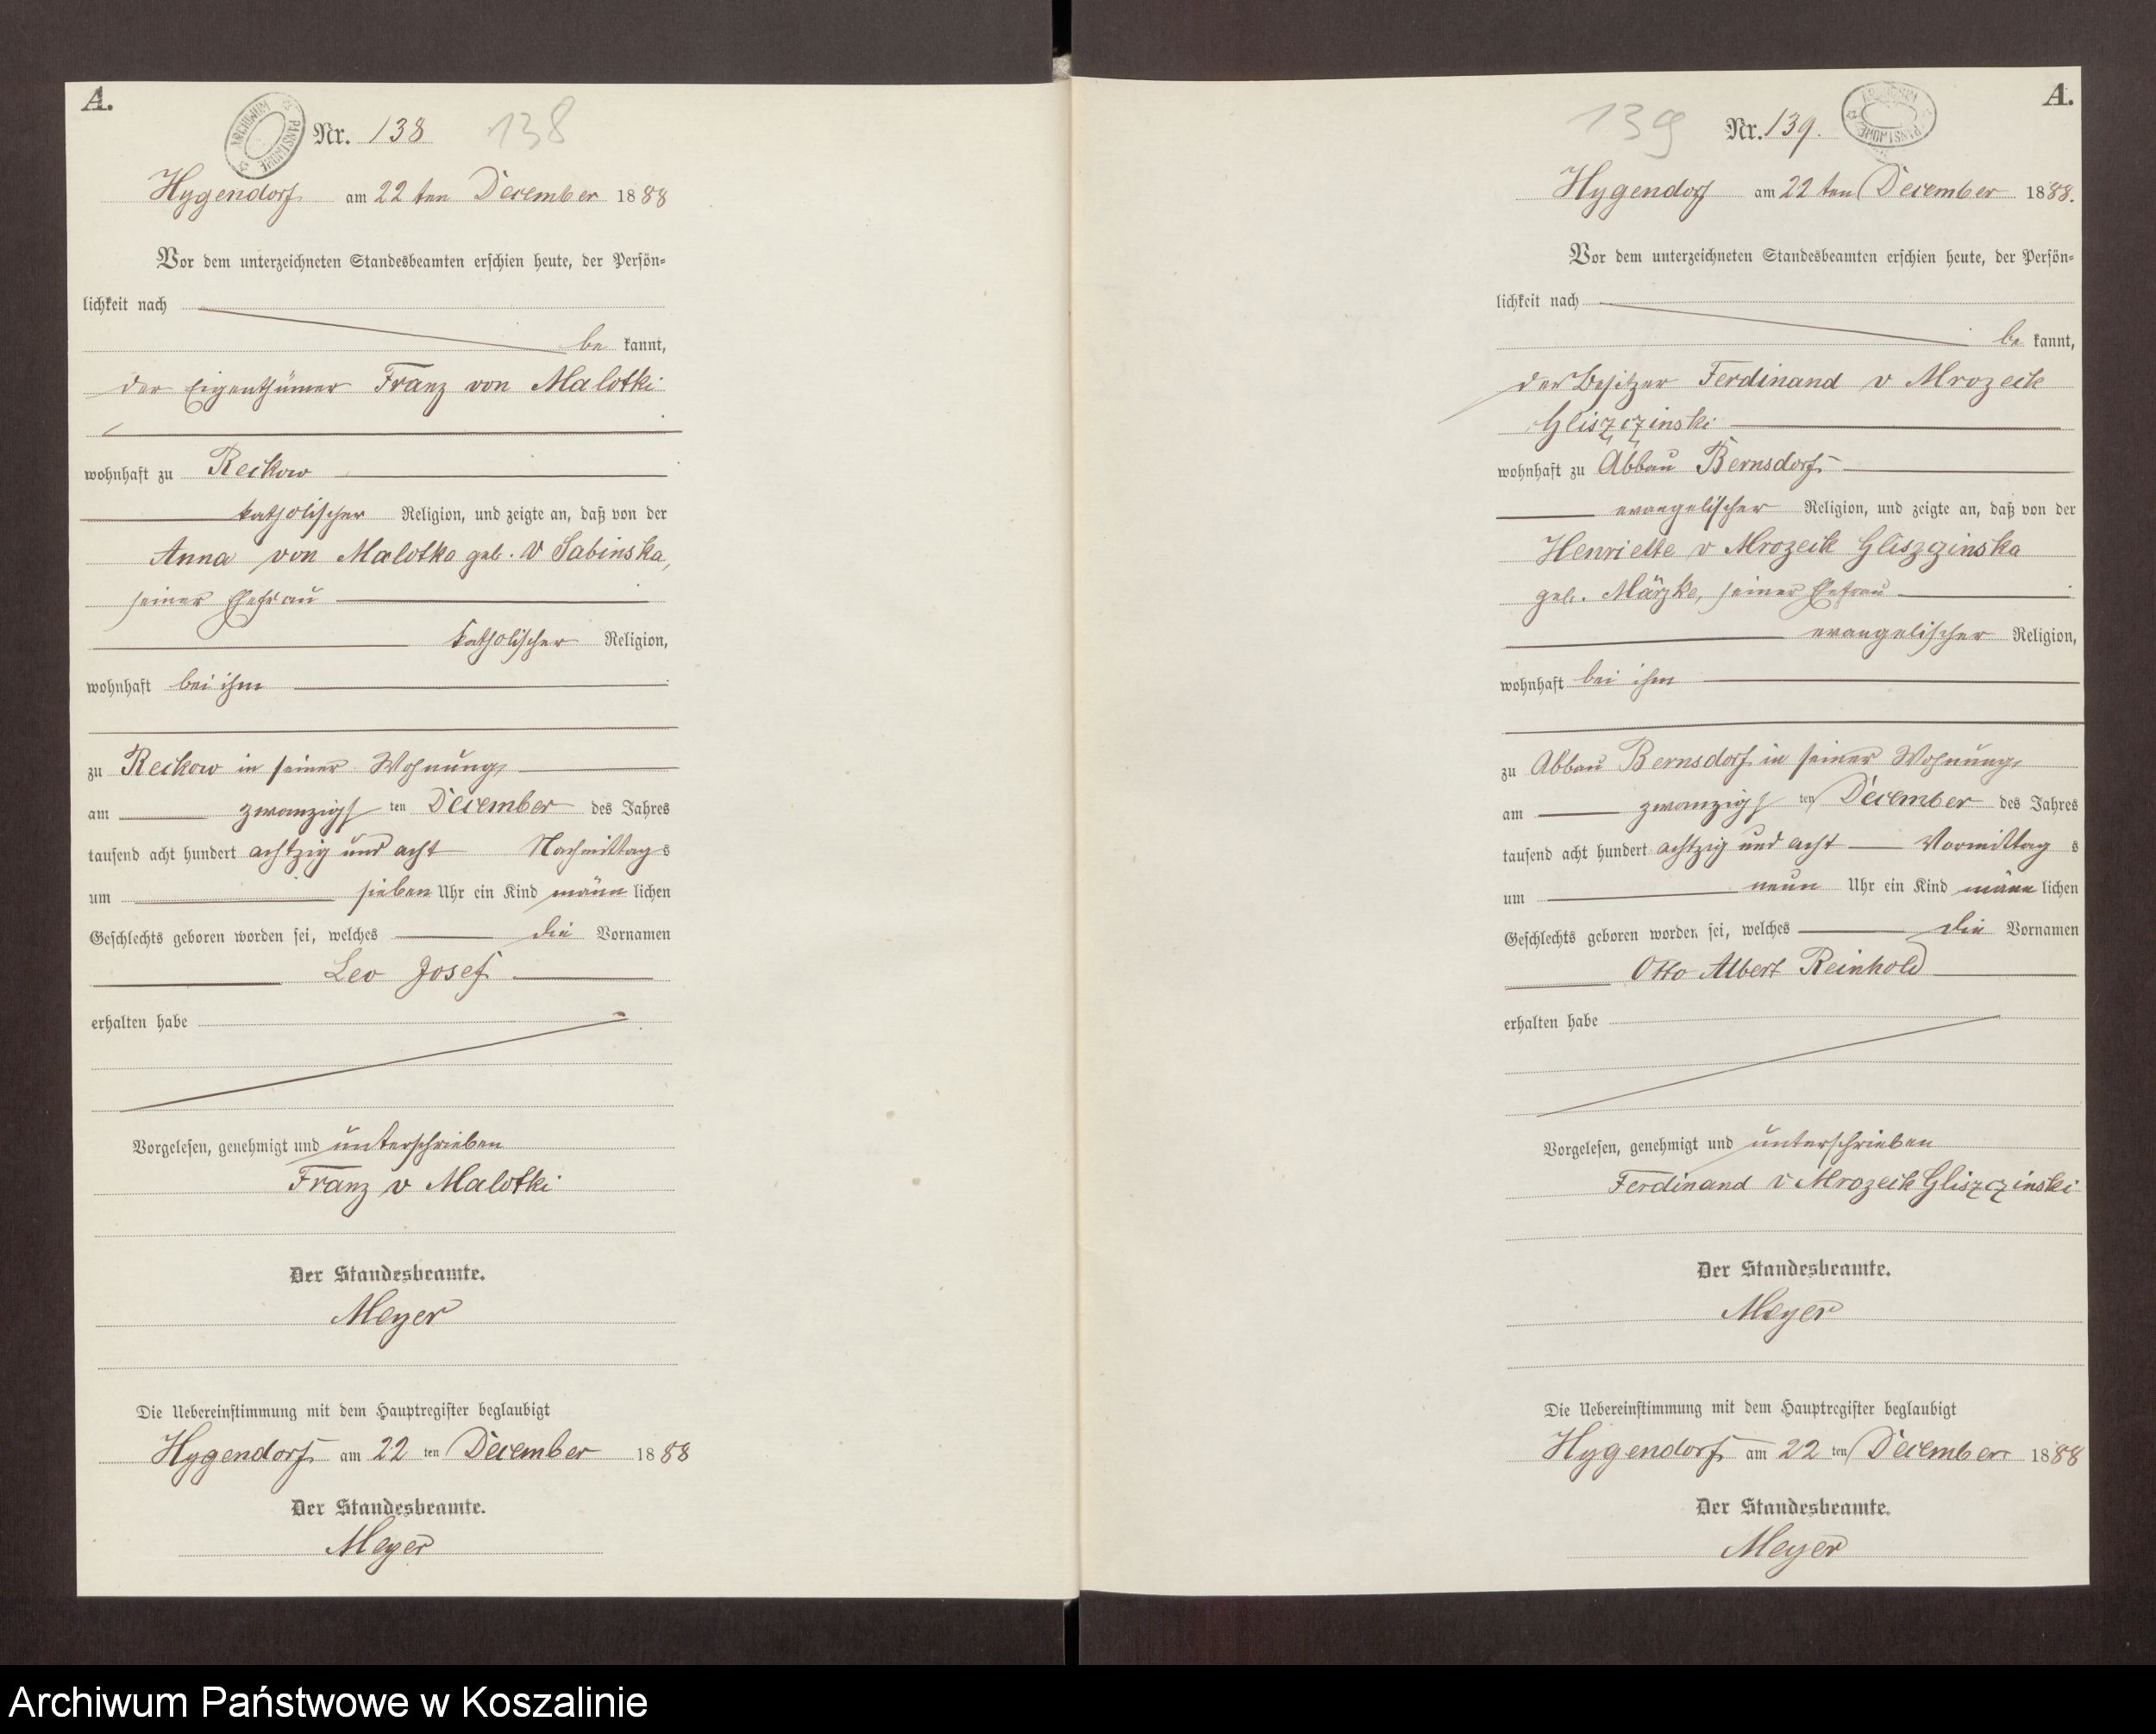 A.
ARCHIWUM PAŃSTWOWE
Nr. 138 138
Hygendorf am 22 ten December 1888
Vor dem unterzeichneten Standesbeamten erschien heute, der Persön-
lichkeit nach
be kannt,
der Eigenthümer Franz von Malotki
wohnhaft zu Reckow
katholischer Religion, und zeigte an, daß von der
Anna von Malotka geb. v Sabinska,
seiner Ehefrau
katholischer Religion,
wohnhaft bei ihm
zu Reckow in seiner Wohnung,
am zwanzigs ten December des Jahres
tausend acht hundert achtzig und acht Nachmittag s
um sieben Uhr ein Kind männ lichen
Geschlechts geboren worden sei, welches die Vornamen
Leo Josef
erhalten habe
Vorgelesen, genehmigt und unterschrieben
Franz v Malotki
Der Standesbeamte.
Meyer
Die Uebereinstimmung mit dem Hauptregister beglaubigt
Hygendorf am 22 ten December 1888
Der Standesbeamte.
Meyer
A.
139 Nr. 139.
ARCHIWUM PAŃSTWOWE
Hygendorf am 22 ten December 1888.
Vor dem unterzeichneten Standesbeamten erschien heute, der Persön-
lichkeit nach
be kannt,
der Besitzer Ferdinand v Mrozeck
Gliszczinski
wohnhaft zu Abbau Bernsdorf
evangelischer Religion, und zeigte an, daß von der
Henriette v Mrozeck Gliszczinska
geb. Märzke, seiner Ehefrau
evangelischer Religion,
wohnhaft bei ihm
zu Abbau Bernsdorf in seiner Wohnung,
am zwanzigs ten December des Jahres
tausend acht hundert achtzig und acht Vormittag s
um neun Uhr ein Kind männ lichen
Geschlechts geboren worden sei, welches die Vornamen
Otto Albert Reinhold
erhalten habe
Vorgelesen, genehmigt und unterschrieben
Ferdinand v Mrozeck Gliszczinski
Der Standesbeamte.
Meyer
Die Uebereinstimmung mit dem Hauptregister beglaubigt
Hygendorf am 22 ten December 1888
Der Standesbeamte.
Meyer
Archiwum Państwowe w Koszalinie